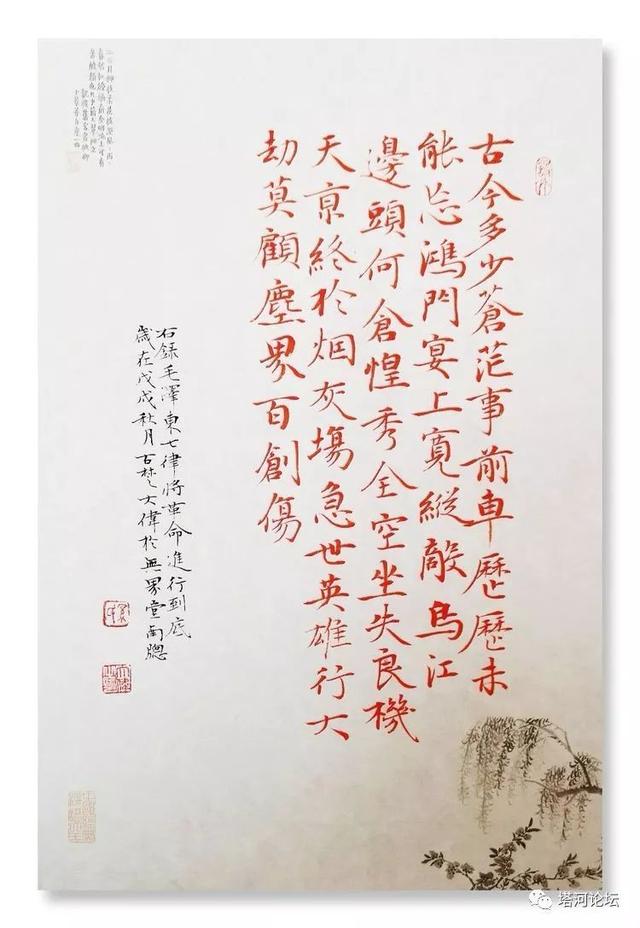 古今多少蒼茫事前車歷歷未
能忘鴻門宴上寬縱敵烏江
邊頭何倉惶秀全空坐失良機
天京終於烟灰場急世英雄行大
劫莫顧塵界百創傷
右録毛澤東七律將革命進行到底
歲在戊戌秋月古楚大偉於無界堂南牕
塔河论坛